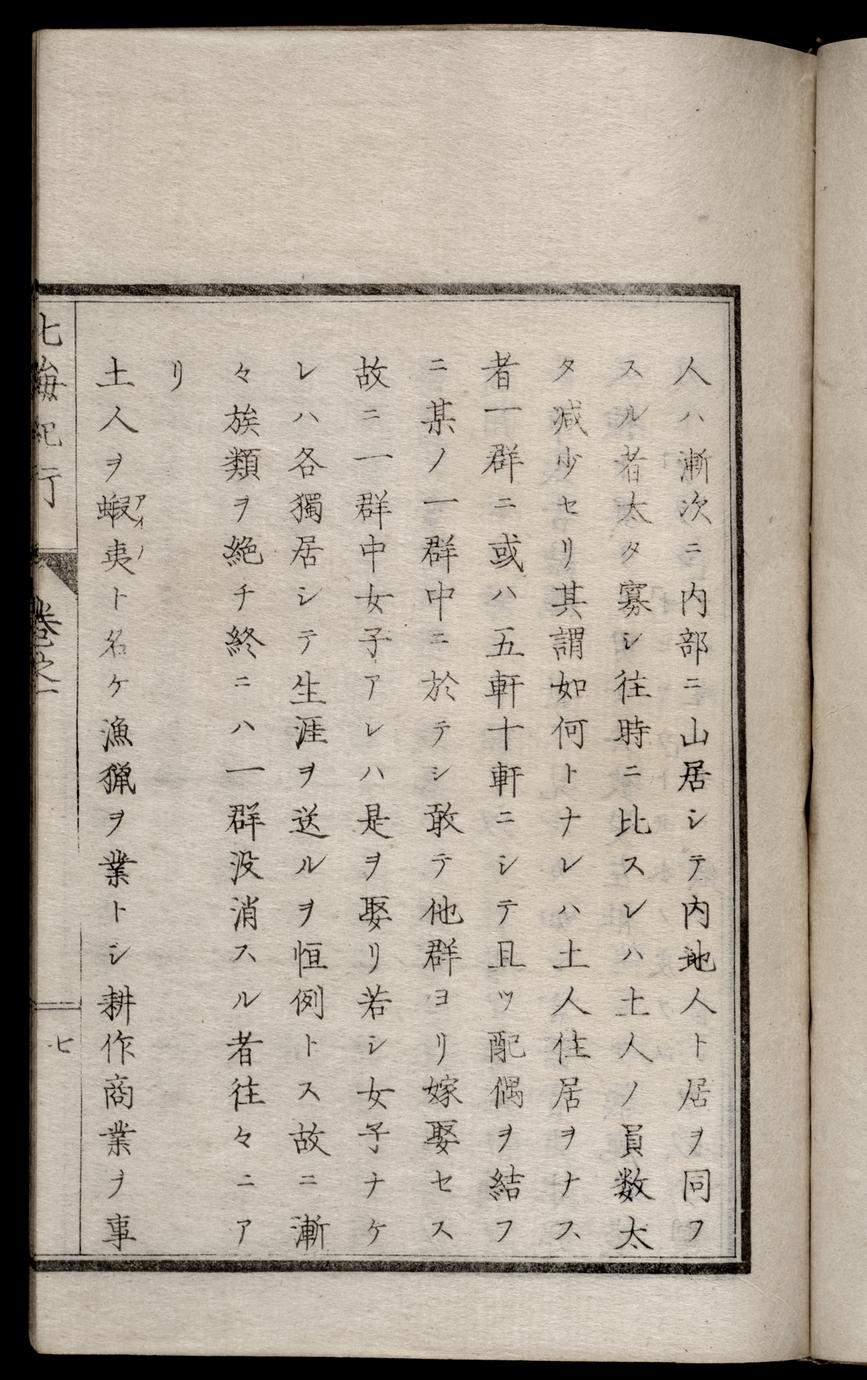 人ハ漸次ニ内部ニ山居シテ内地人ト居ヲ同フ
スル者太タ寡シ往時ニ比スレハ土人ノ員数太
タ減少セリ其謂如何トナレハ土人住居ヲナス
者一群ニ或ハ五軒十軒ニシテ且ツ配偶ヲ結フ
ニ某ノ一群中ニ於テシ敢テ他群ヨリ嫁娶セス
故ニ一群中女子アレハ是ヲ娶リ若シ女子ナケ
レハ各獨居シテ生涯ヲ送ルヲ恒例トス故ニ漸
々族類ヲ絶チ終ニハ一群没消スル者往々ニア
リ
土人ヲ蝦夷ト名ケ漁猟ヲ業トシ耕作商業ヲ事
アイノ
北海紀行
卷之一
七